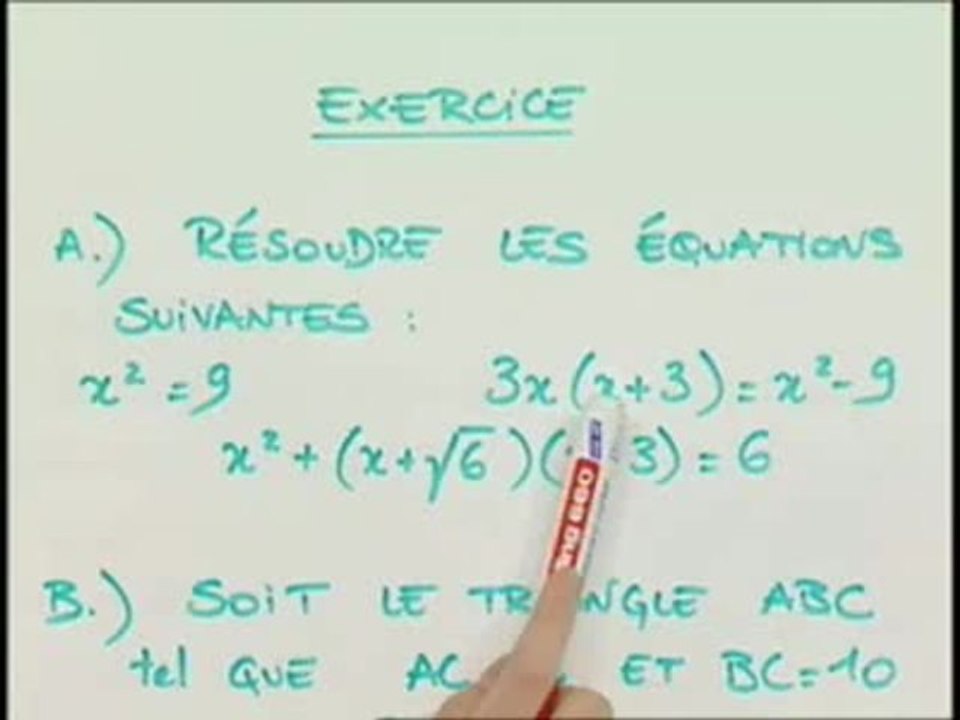 EXERCICE
A.) RÉSOUDRE LES ÉQUATIONS
SUIVANTES :
x² = 9 3x(x+3) = x²-9
x² + (x+√6)( 3) = 6
B.) SOIT LE TR NGLE ABC
tel QUE AC ET BC=10